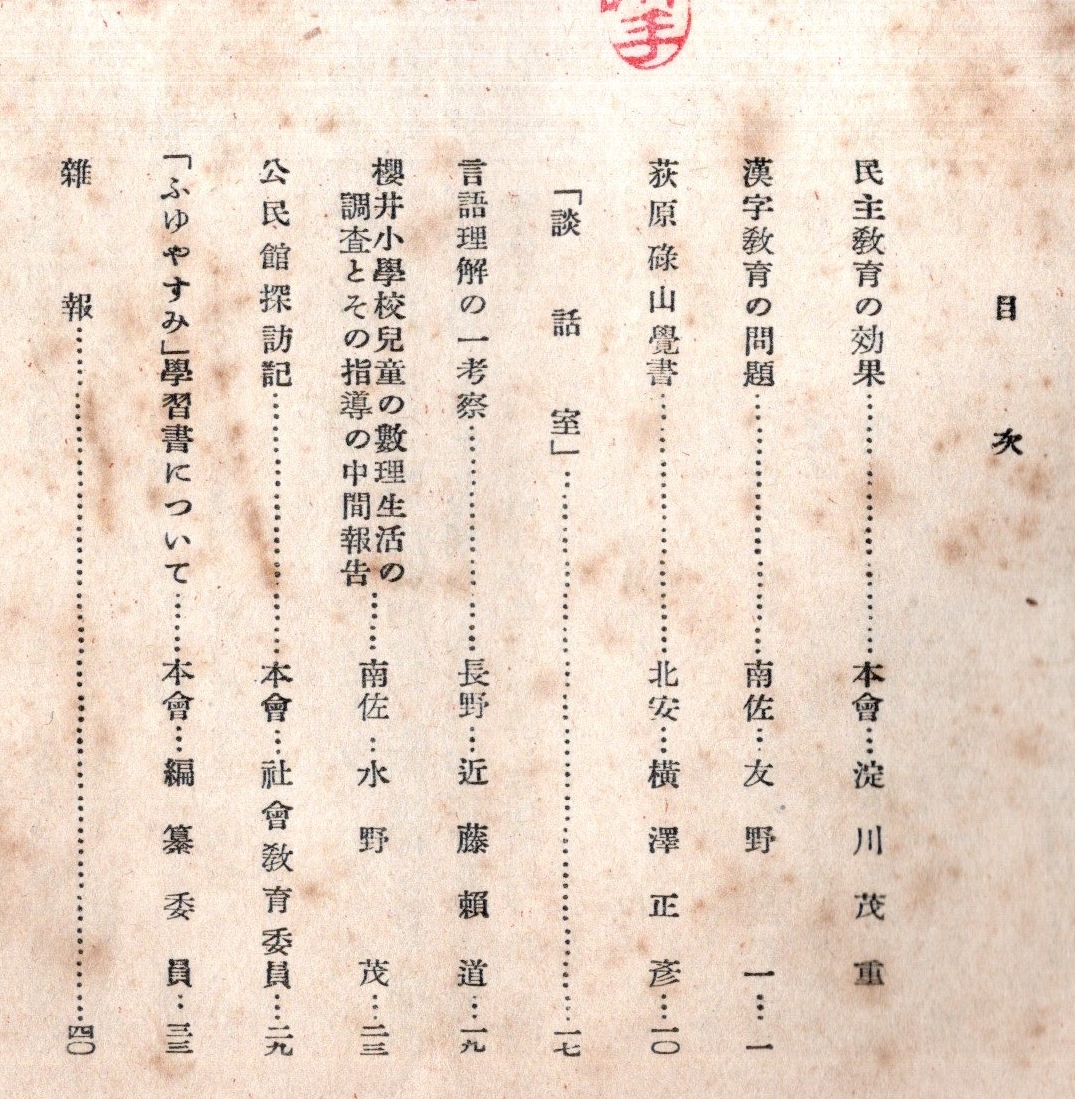 目次
民主教育の効果…………本會…淀川茂重
漢字教育の問題…………南佐…友野一…一
荻原碌山覺書…………北安…横澤正彦…一〇
「談話室」…………一七
言語理解の一考察…………長野…近藤頼道…一九
櫻井小學校兒童の數理生活の
調査とその指導の中間報告……南佐…水野茂…二三
公民館探訪記…………本會…社會教育委員…二九
「ふゆやすみ」學習書について……本會…編纂委員…三三
雜報…………四〇